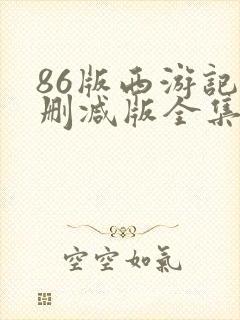 86版西游記
删减版全集
空空如氣